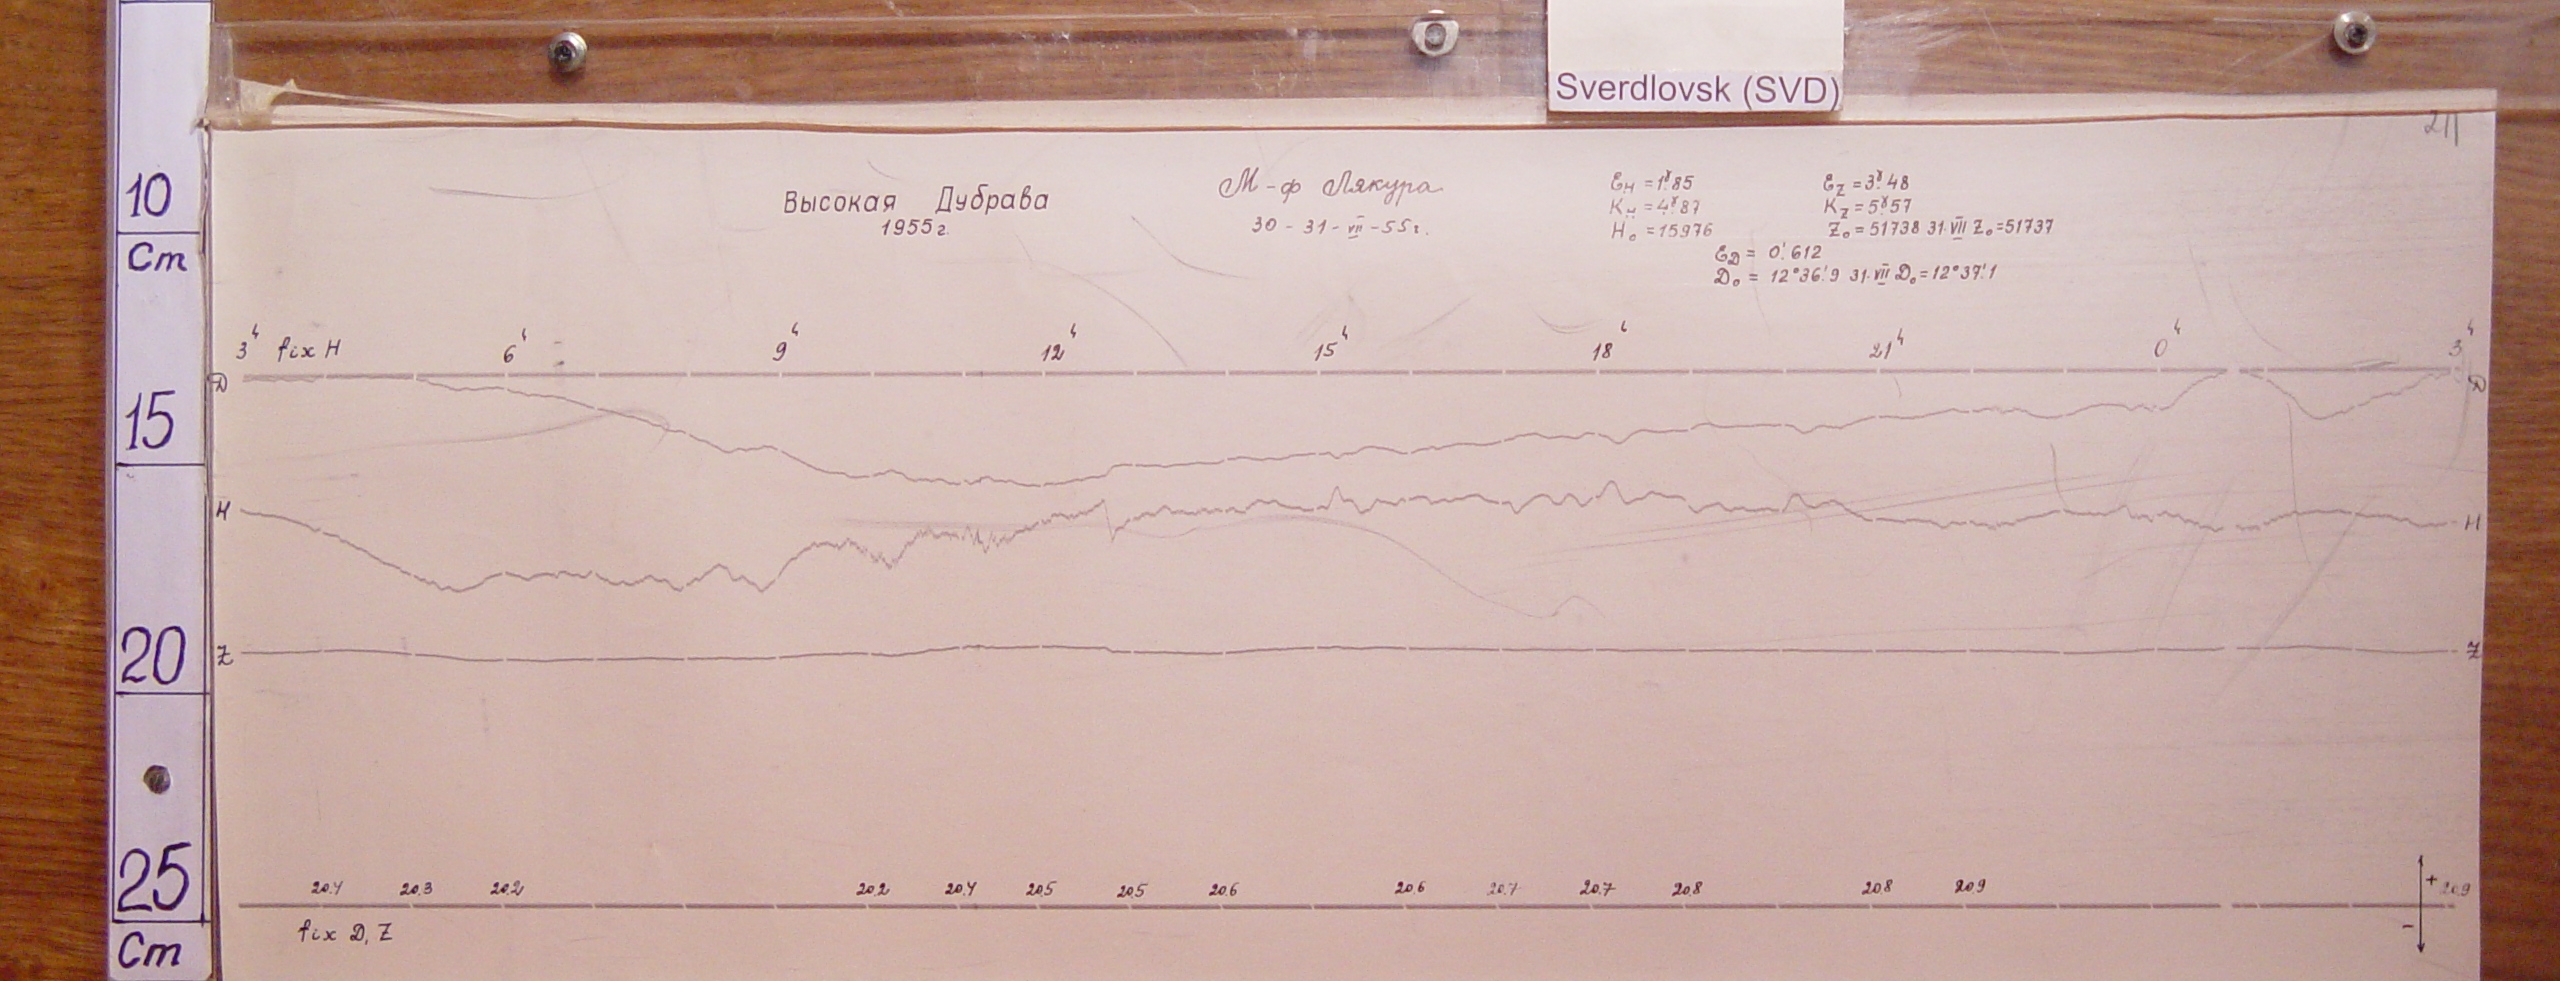 Sverdlovsk (SVD)
211
10
Cm
15
20
25
Cm
Высокая Дубрава
1955г.
М-ф Лякура
30 - 31 - VII - 55г.
Ɛн = 1ᵞ.85
Kн = 4ᵞ.87
H₀ = 15976
Ɛz = 3ᵞ.48
Kz = 5ᵞ.57
Z₀ = 51738 31·VII Z₀ = 51737
ƐD = 0'.612
D₀ = 12°36'.9 31·VII D₀ = 12°37'.1
3ʰ fix H 6ʰ 9ʰ 12ʰ 15ʰ 18ʰ 21ʰ 0ʰ 3ʰ
D D
H H
Z Z
20.4 20.3 20.2 20.2 20.4 20.5 20.5 20.6 20.6 20.7 20.7 20.8 20.8 20.9 + 20.9
fix D, Z -